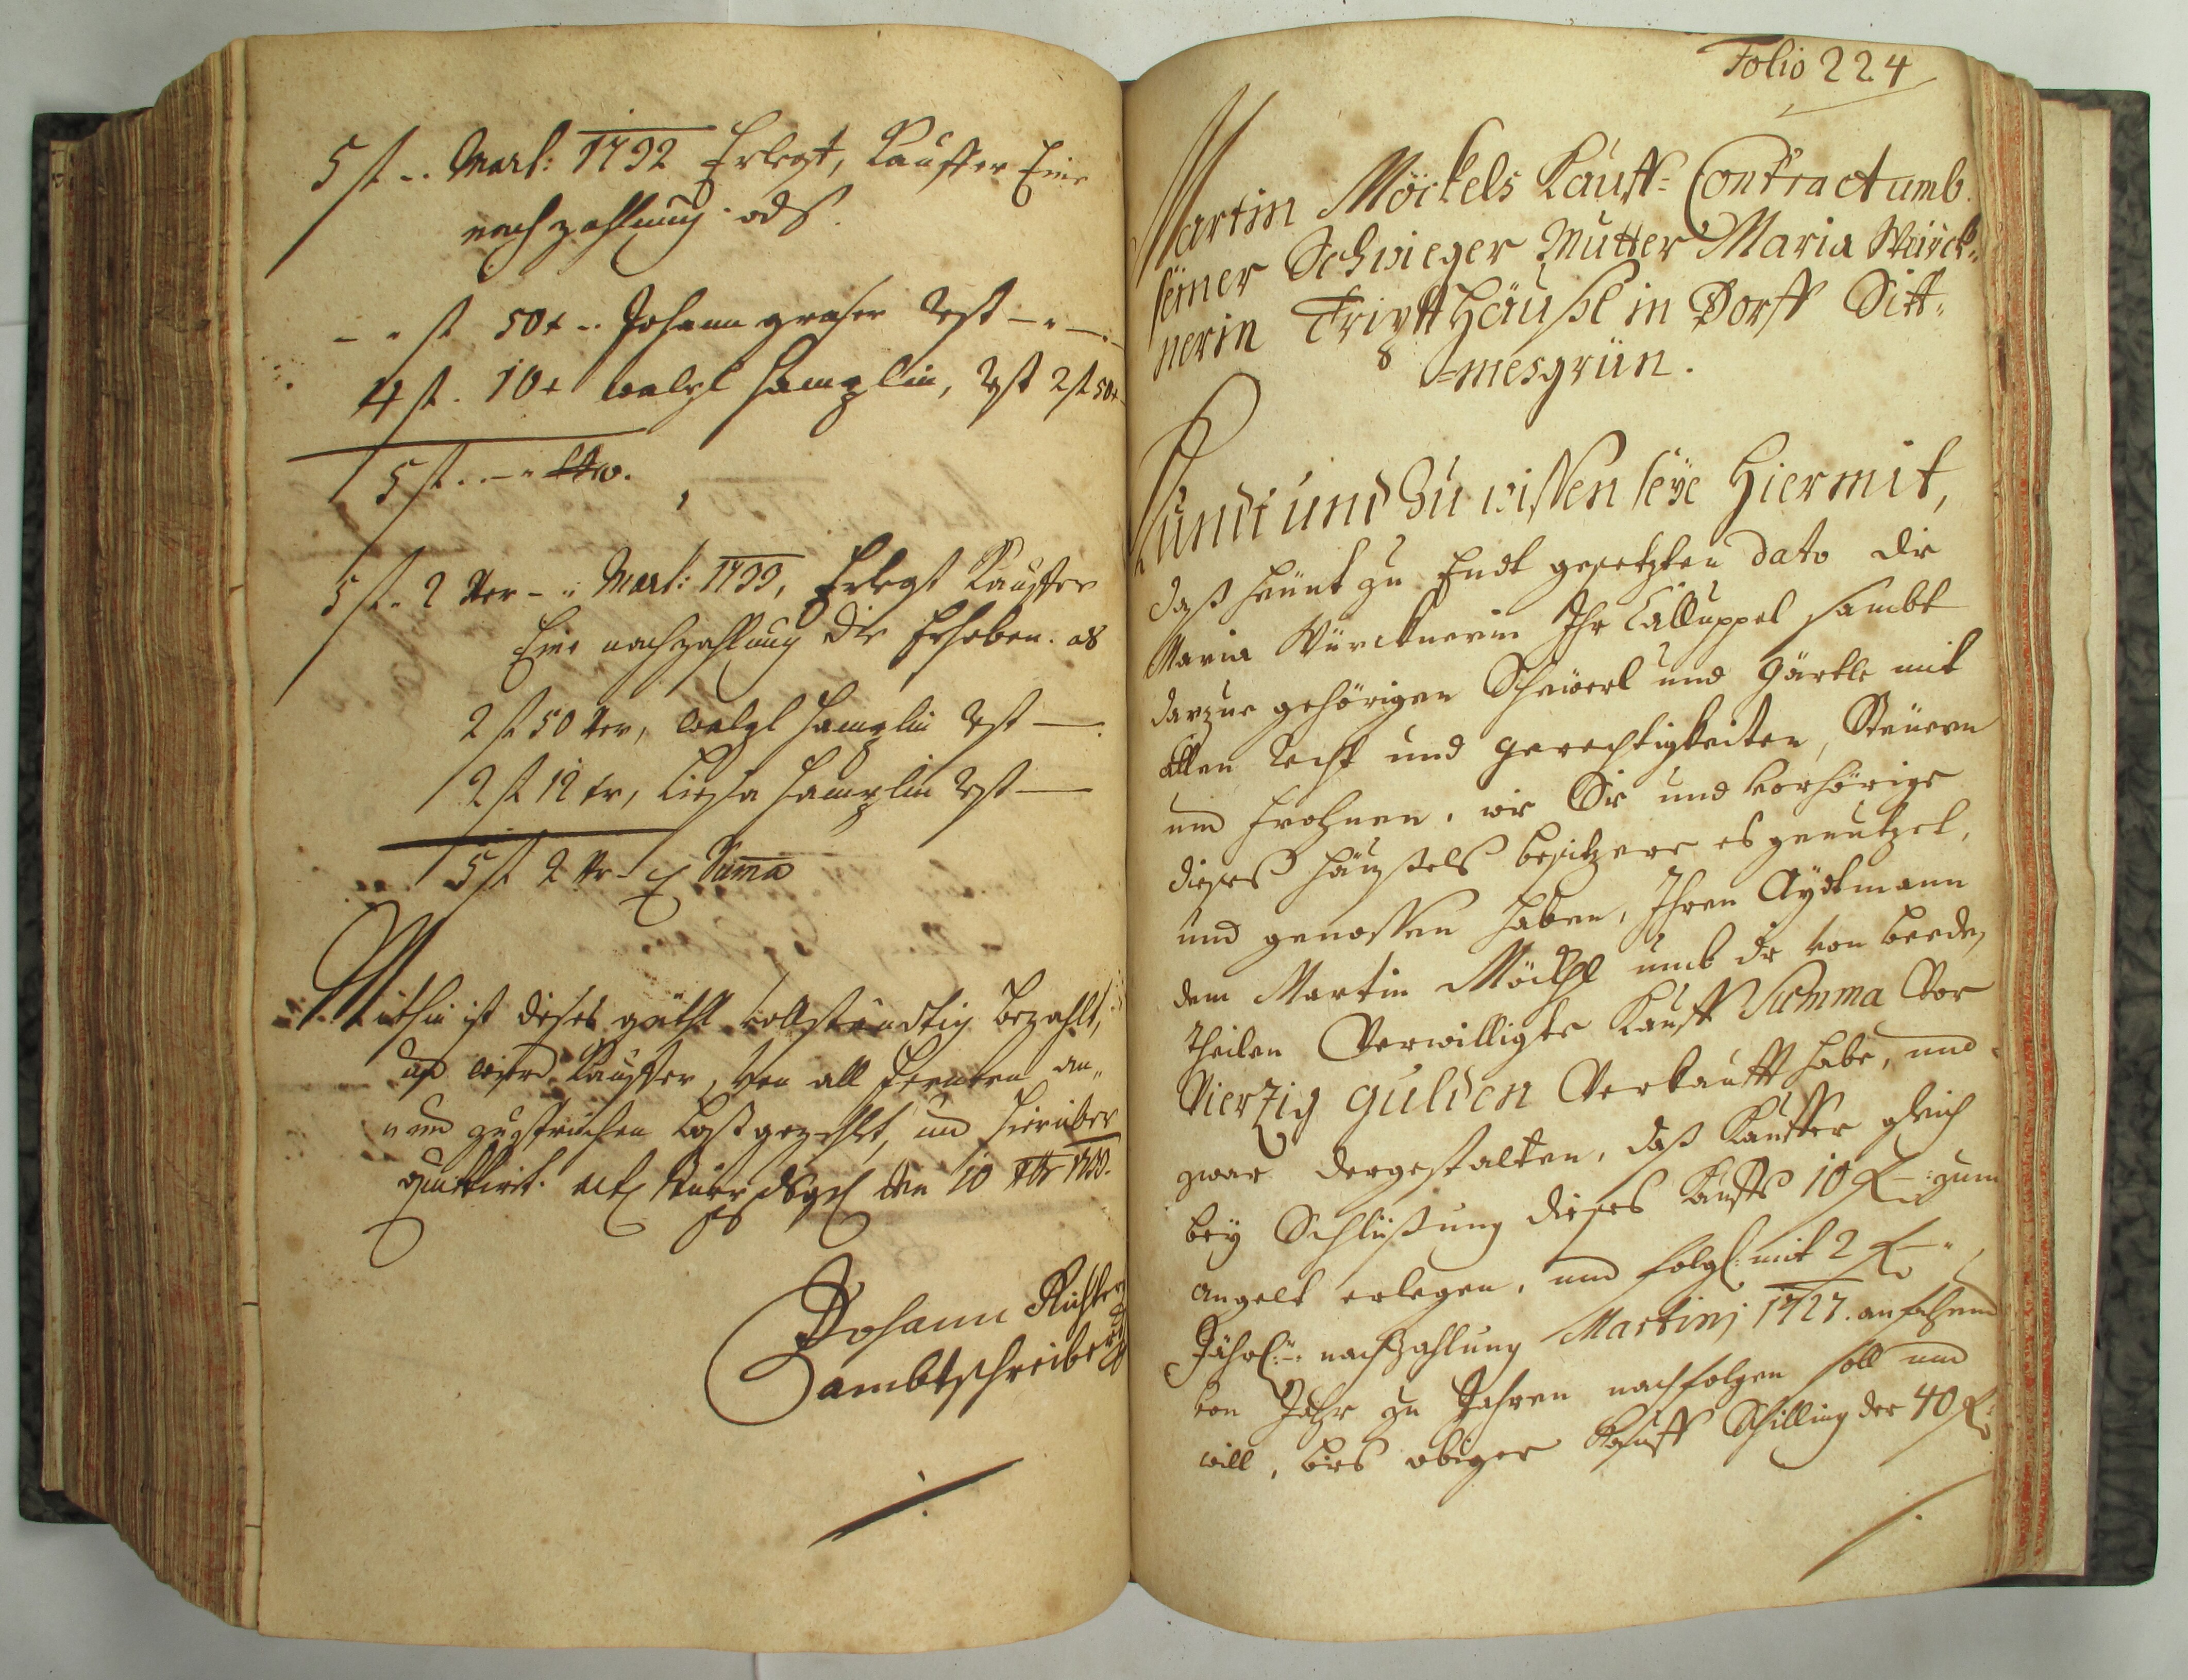 5 fl -.. Mart: 1732 Erlegt, Kauffer Eine
nachzahlung. als.
- " fl 50 x -. Johann graser Rest - " -
4 fl. 10 x walzl Hamzlin, Rest 2 fl 50 x
5 fl. . - "
5 fl. 2 xer - : Mart: 1733, Erlegt Kauffer
Eine nachzahlung die Erhoben. als
2 fl 50 xer, walzl Hamzlin Rest -
2 fl 12 xr, Hamzlin Rest -
5 fl 2 xr - Suma
Mithin ist dieses güthl vollständtig bezahlt,
und wird Kauffer, von all fernern an-
gesprochen loßgezehlt, und hierüber
quittirt. den 10 1733.
Johann Richter
ambtschreiber
Folio 224
Martin Möckels Kauff= Contract umb
seiner Schwieger Mutter Maria Würck=
nerin Tripff Häußl in Dorff Sitt=
=mesgrün.
Kundt und Zu wissen seye Hiermit,
daß heünt zu Endt gesetzten dato die
Maria Würcknerin Ihr Calluppel sambt
darzue gehörigen Scheüerl und Gärtle mit
allen Recht und gerechtigkeiten, Steüern
und frohnen, wie Sie und vorhörige
dieses Häußels besitzere es genutzet,
und genossen haben, Ihren Aydtmann
dem Martin Möckhl umb die von beeden
theilen Verwilligte Kauff Summa Vor
Vierzig gulden Verkaufft habe, und
zwar dergestalten, daß Kauffer gleich
bey Schlüßung dieses Kauffs 10 f - : zum
angelt erlegen, und folgl: mit 2 f - "
Jährl: -: nachzahlung Martinj 1727. anfahend
von Jahr zu Jahren nachfolgen soll und
will, biß obiger Kauff Schilling der 40 f: